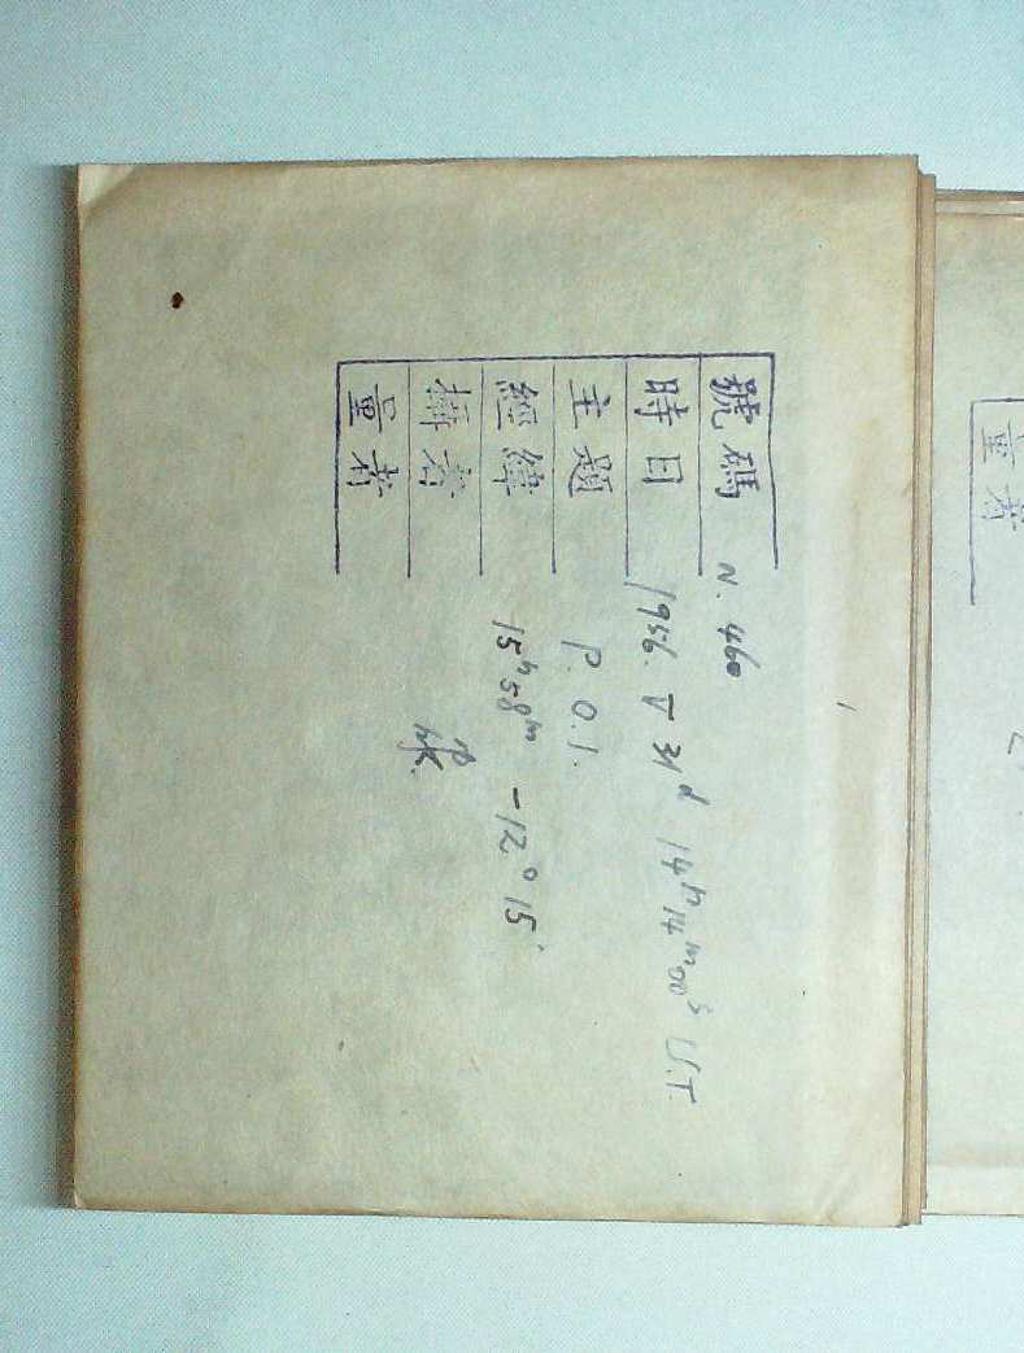 1
號碼 N. 460
時日 1956. V 31ᵈ 14ʰ14ᵐ00ˢ U.T
主題 P. O. 1.
經緯 15ʰ58ᵐ -12°15'
攝者
量者
量者